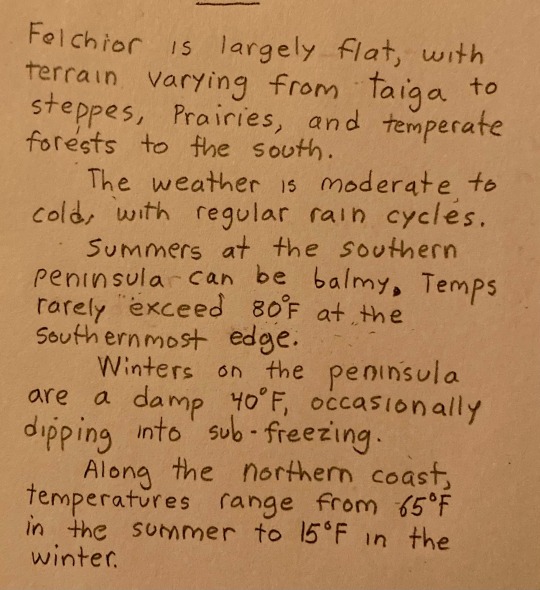 Felchior is largely flat, with
terrain varying from taiga to
steppes, Prairies, and temperate
forests to the south.
The weather is moderate to
cold, with regular rain cycles.
Summers at the southern
peninsula can be balmy. Temps
rarely exceed 80°F at the
southernmost edge.
Winters on the peninsula
are a damp 40°F, occasionally
dipping into sub-freezing.
Along the northern coast,
temperatures range from 65°F
in the summer to 15°F in the
winter.